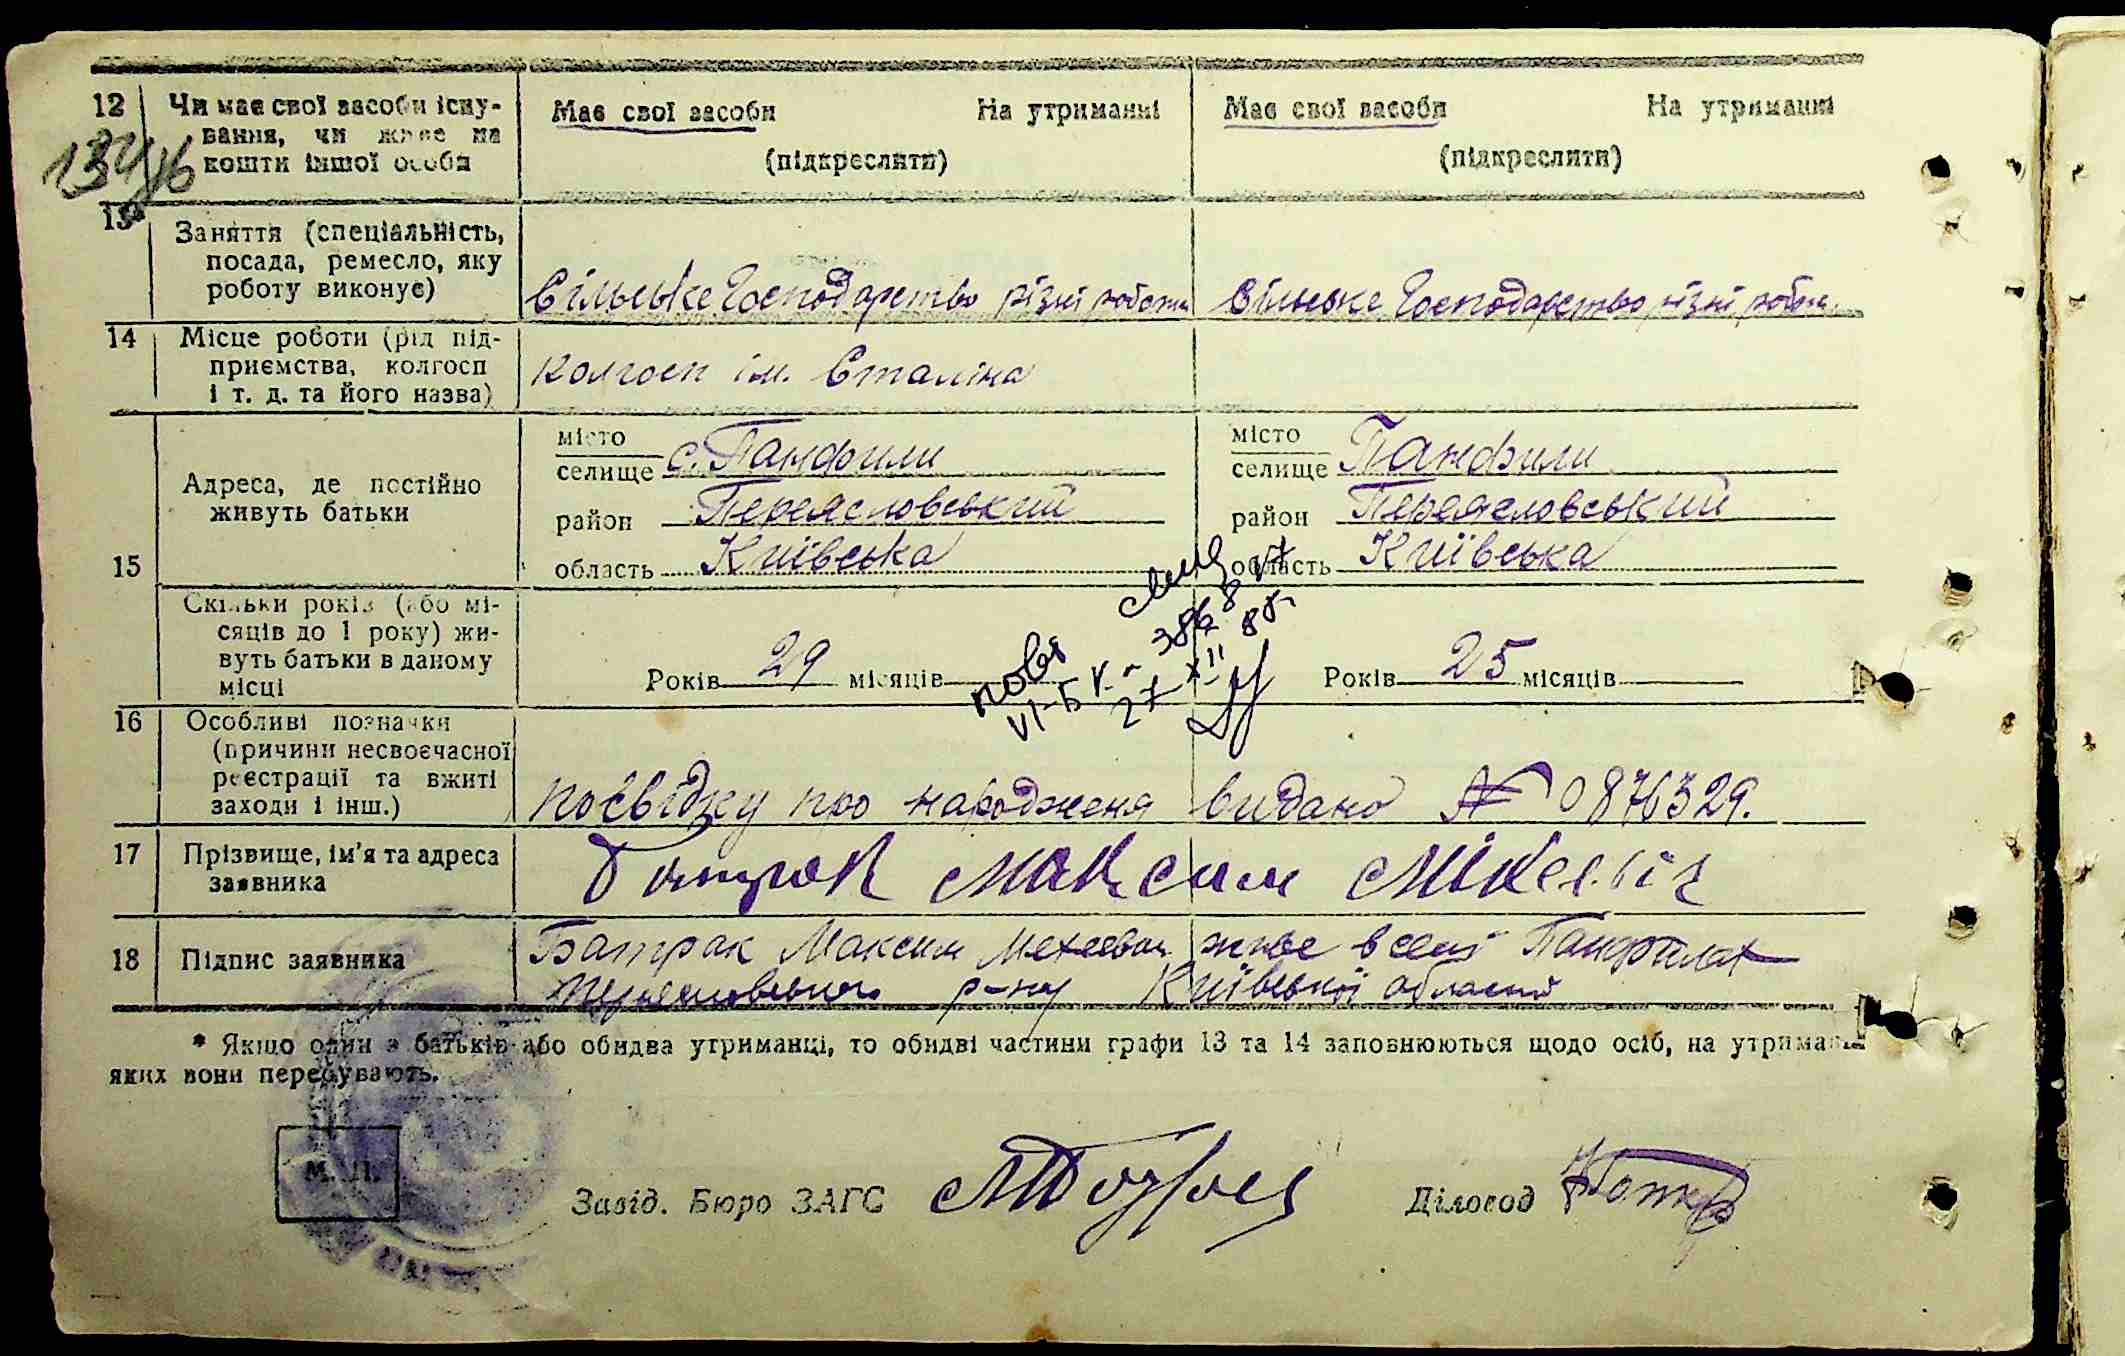 12 Чи має свої засоби існу-
вання, чи живе на
кошти іншої особи
Має свої засоби На утриманні
(підкреслити)
Має свої засоби На утриманні
(підкреслити)
13 Заняття (спеціальність,
посада, ремесло, яку
роботу виконує)
Сільське Господарство різні роботи
Сільське Господарство різні
14 Місце роботи (рід під-
приємства, колгосп
і т. д. та його назва)
Колгосп ім. Сталіна
15
Адреса, де постійно
живуть батьки
місто
селище с. Панфили
район Переясловський
область Київська
місто
селище Панфили
район Переясловський
область Київська
Скільки років (або мі-
сяців до 1 року) жи-
вуть батьки в даному
місці
Років 29 місяців
Років 25 місяців
16 Особливі позначки
(причини несвоєчасної
реєстрації та вжиті
заходи і інш.)
посвідку про народженя видано № 0876329.
17 Прізвище, ім'я та адреса
заявника
Батрак Максим
18 Підпис заявника
Батрак Максим Мехеевич живе в селі Панфилах
Переясловського р-ну Київської області
* Якщо один з батьків або обидва утриманці, то обидві частини графи 13 та 14 заповнюються щодо осіб, на утриманні
яких вони перебувають.
М. П.
Завід. Бюро ЗАГС
Діловод